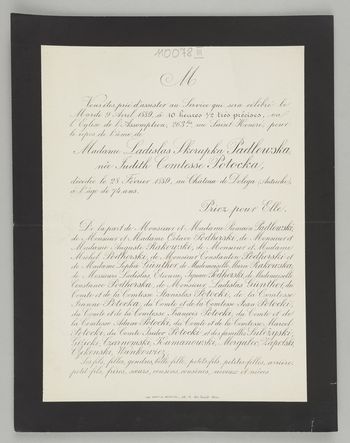 110078 III
M
Vous êtes prié d'assister au Service qui sera célébré le
Mardi 9 Avril 1889, à 10 heures 1/2 très précises, en
l'Eglise de l'Assomption, 263 bis, rue Saint Honoré, pour
le repos de l'âme de
Madame Ladislas Skrzypka Padlewska,
née Judith Comtesse Potocka,
décédée le 28 Février 1889, au Château de (Autriche)
à l'âge de 74 ans.
Priez pour Elle.
De la part de Monsieur et Madame Padlewski,
de Monsieur et Madame Octave Podhorski, de Monsieur et
Madame Auguste de Monsieur et Madame
Michel Podhorski, de Monsieur Constantin Podhorski et
de Madame Sophie Günther, de Mademoiselle Marie
de Messieurs Ladislas, Etienne, Podhorski, de Mademoiselle
Constance Podhorska, de Monsieur Ladislas Günther, du
Comte et de la Comtesse Stanislas Potocki, de la Comtesse
Potocka, du Comte et de la Comtesse Jean Potocki,
du Comte et de la Comtesse François Potocki, du Comte et de
la Comtesse Adam Potocki, du Comte et de la Comtesse Marcel
Potocki, du Comte Potocki et des familles
Giżycki, Czarnomski, Morzgalec, Zapolski,
Wańkowicz,
Ses fils, filles, gendres, belle fille, petits fils, petites filles, arrière
petit fils, frères, sœurs, cousins, cousines, neveux et nièces